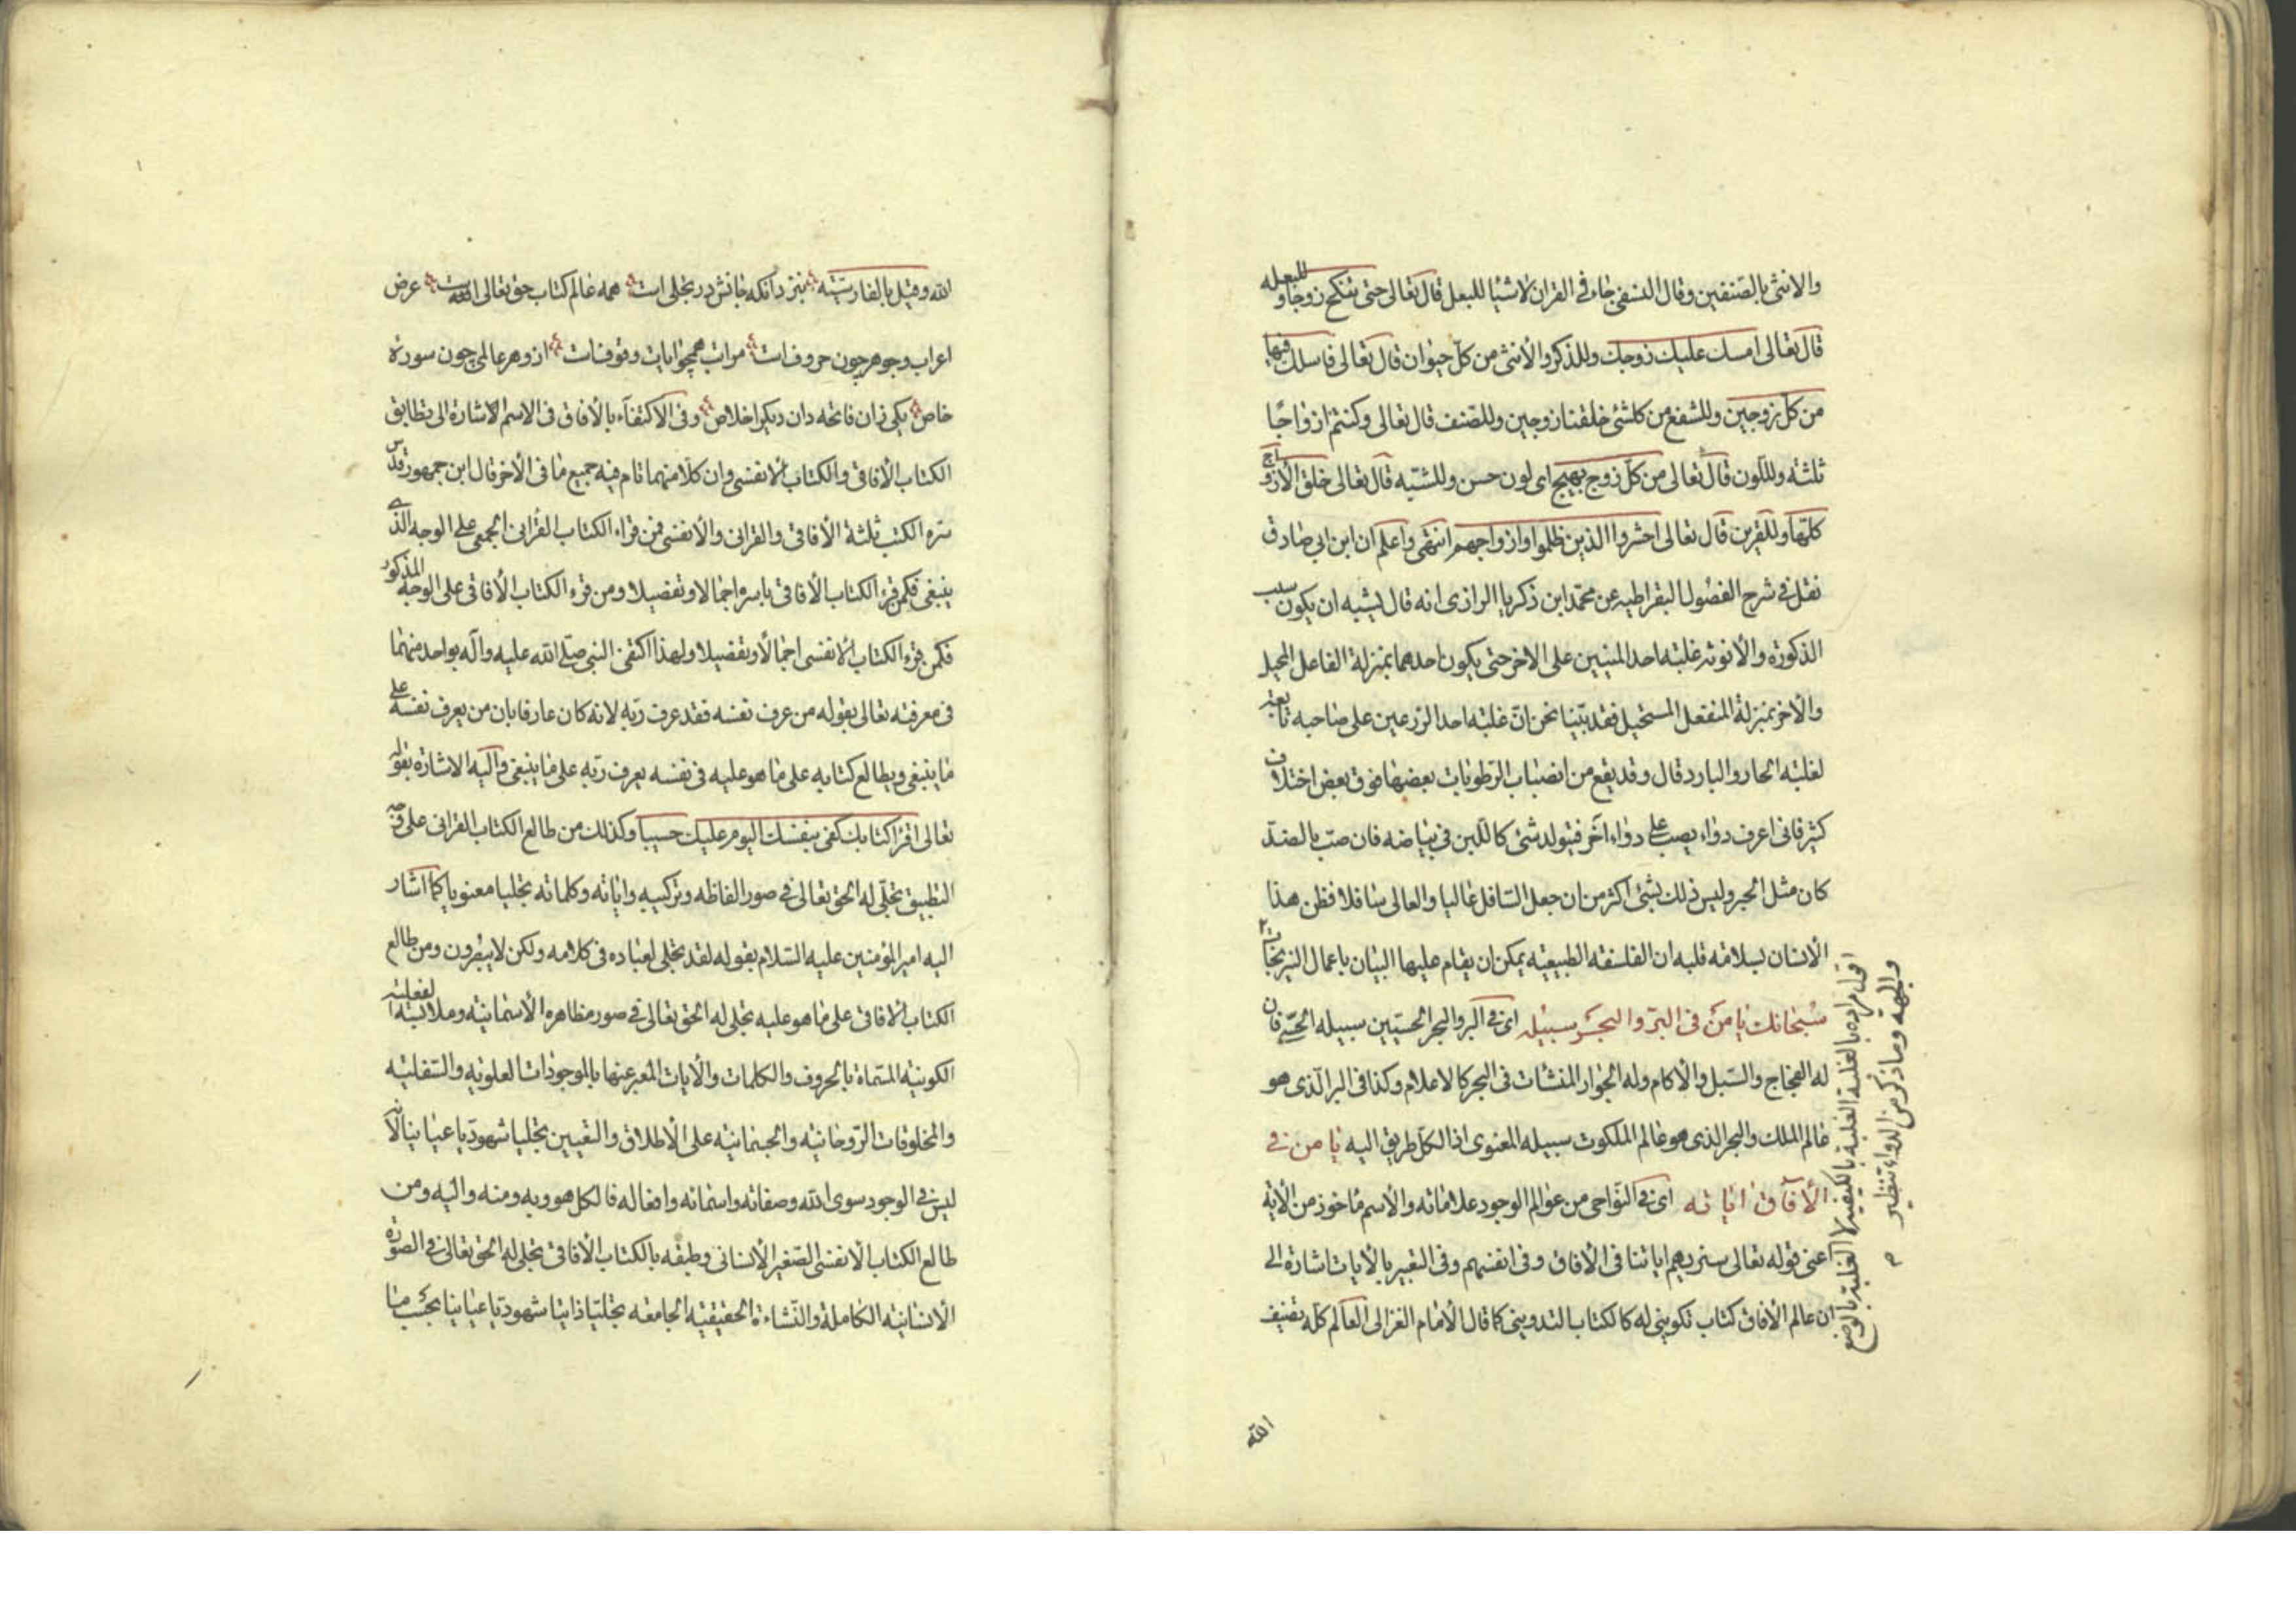 والانثى بالصنفين وقال النسفى جاء فى القران لاشيا للبعل قال تعالى حتى تنكح زوجا و للبعله
قال تعالى امسك عليك زوجك وللذكر والانثى من كل حيوان قال تعالى فاسلك فيها
من كل زوجين وللشفع من كلشئ خلقنا زوجين وللصنف قال تعالى وكنتم ازواجًا
ثلثه وللّون قال تعالى من كل زوج بهيج اى لون حسن وللشبه قال تعالى خلق الازواج
كلّها وللقرين قال تعالى احشروا الذين ظلموا وازواجهم انتهى واعلم ان ابن ابى صادق
نقل فى شرح الفصول البقراطيه عن محمد ابن ذكريا الرازى انه قال يشبه ان يكون سبب
الذكورة والأنوثه غلبه احد المنيين على الاخر حتى يكون احدهما بمنزلة الفاعل المحيل
والآخر بمنزلة المنفعل المستحيل فقد بيّنا نحن انّ غلبه احد الزرعين على صاحبه تابعة
لغلبه الحار والبارد قال وقد يقع من انصباب الرّطوبات بعضها فوق بعض اختلاف
كثير فانى اعرف دواء يصب على دواء آخر فيتولد شئ كاللبن فى بياضه فان صب بالضدّ
كان مثل الحبر وليس ذلك بشئ اكثر من ان جعل السّافل عاليا والعالى سافلا فظن هذا
الانسان لسلامة قلبه ان الفلسفه الطبيعيه يمكن ان يقام عليها البيان باعمال النيرنجات
سُبحانك يا من فى البرّ والبحر سبيله اى فى البر والبحر الحسيّين سبيله الحسّى فان
له الفجاج والسّبل والاكام وله الجوار المنشات فى البحر كالاعلام وكذا فى البر الّذى هو
عالم الملك والبحر الذى هو عالم الملكوت سبيله المعنوى اذ الكل طريق اليه يا من فى
الآفاق اياته اى فى النّواحى من عوالم الوجود علاماته والاسم ماخوذ من الآية
اعنى قوله تعالى سنريهم اياتنا فى الآفاق وفى انفسهم وفى التعبير بالآيات اشارة الى
ان عالم الآفاق كتاب تكوينى له كالكتاب التدوينى كما قال الامام الغزالى العالم كله تصنيف
اقول مراده بالغلبة الغلبة بالكيفية لا الغلبة بالوضع
والجهة وما ذكر من الدواء تنظير م
الله
الله وقيل بالفارسيّه بنزد آنكه جانش در تجلى است همه عالم كتاب حق تعالى است عرض
اعراب وجوهر چون حروفست مراتب همچو ايات وقوفست ازو هر عالمى چون سورهٔ
خاص يكى زان فاتحه دان ديكر اخلاص وفى الاكتفآء بالآفاق فى الاسم الاشارة الى تطابق
الكتاب الآفاقى والكتاب الانفسى وان كلا منهما تام فيه جميع ما فى الآخر قال ابن جمهور قدس
سره الكتب ثلثة الآفاقى والقرانى والأنفسى فمن قراء الكتاب القرانى الجمعى على الوجه الذى
ينبغى فكمن قرء الكتاب الآفاقى باسره اجمالا وتفصيلا ومن قرء الكتاب الآفاقى على الوجه المذكور
فكمن قرء الكتاب الانفسى اجمالا وتفصيلا ولهذا اكتفى النبى صلى الله عليه وآله بواحد منهما
فى معرفته تعالى بقوله من عرف نفسه فقد عرف ربه لانه كان عارفا بان من يعرف نفسه على
ما ينبغى ويطالع كتابه على ما هو عليه فى نفسه يعرف ربّه على ما ينبغى واليه الاشارة بقوله
تعالى اقرأ كتابك كفى بنفسك اليوم عليك حسيبا وكذلك من طالع الكتاب القرانى على وجه
التطبيق تجلّى له الحق تعالى فى صور الفاظه وتركيبه واياته وكلماته تجليا معنويا كما اشار
اليه امير المؤمنين عليه السّلام بقوله لقد تجلى لعباده فى كلامه ولكن لا يبصرون ومن طالع
الكتاب الآفاقى على ما هو عليه تجلى له الحق تعالى فى صور مظاهره الأسمائية وملابسه الفعليه
الكونيه المسمّاة بالحروف والكلمات والآيات المعبر عنها بالموجودات العلويه والسّفليه
والمخلوقات الرّوحانيه والجسمانيه على الاطلاق والتعيين تجليا شهوديّا عيانيا لانه
ليس فى الوجود سوى الله وصفاته واسمائه وافعاله فالكل هو وبه ومنه واليه ومن
طالع الكتاب الانفسى الصّغير الانسانى وطبقه بالكتاب الآفاقى تجلى له الحق تعالى فى الصّورة
الانسانيه الكاملة والنّشاءة الحقيقيه الجامعه تجليّا ذاتيا شهوديّا عيانيا بحسب ما